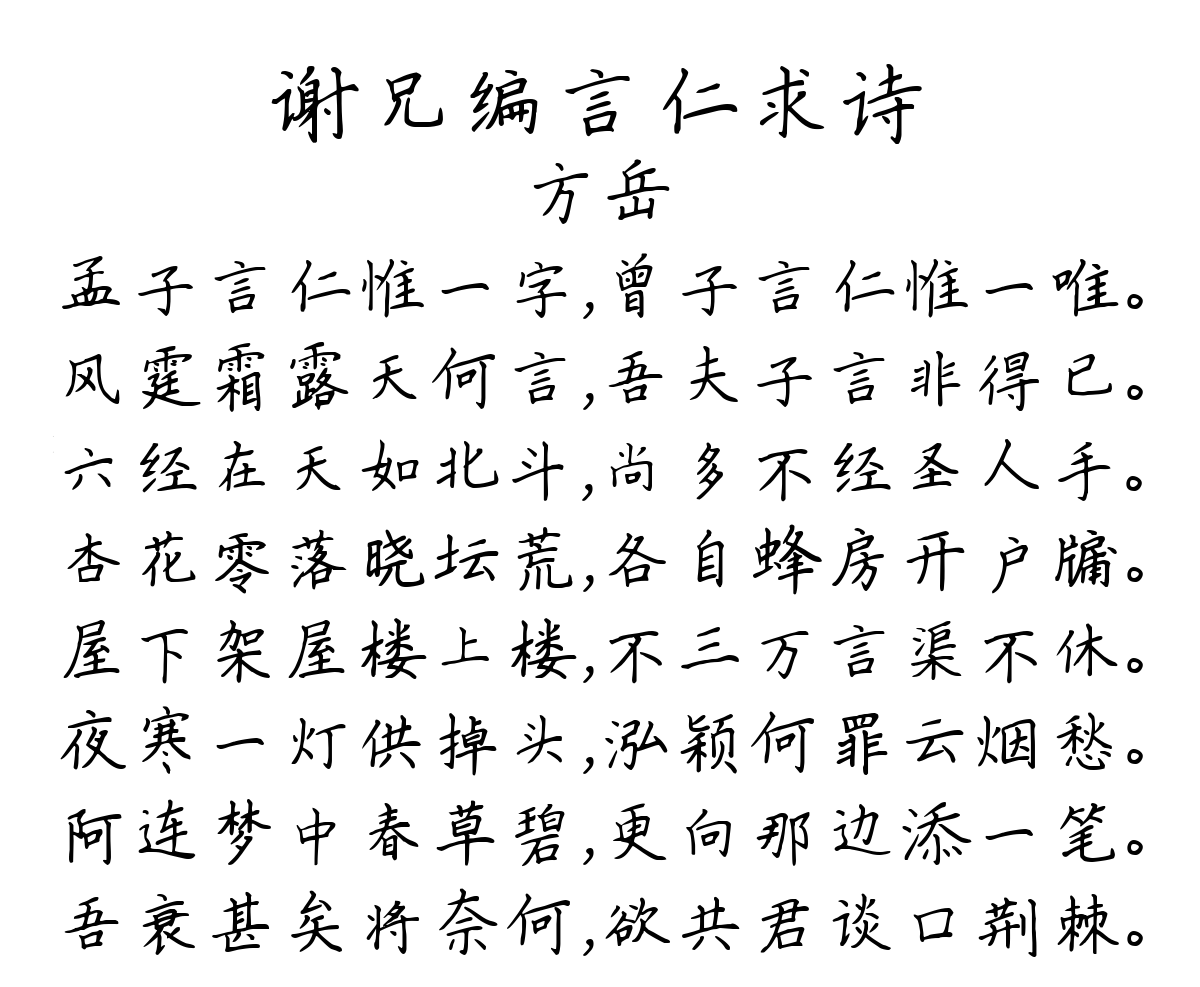 谢兄编言仁求诗
方岳
孟子言仁惟一字,曾子言仁惟一唯。
风霆霜露天何言,吾夫子言非得已。
六经在天如北斗,尚多不经圣人手。
杏花零落晓坛荒,各自蜂房开户牖。
屋下架屋楼上楼,不三万言渠不休。
夜寒一灯供掉头,泓颖何罪云烟愁。
阿连梦中春草碧,更向那边添一笔。
吾衰甚矣将奈何,欲共君谈口荆棘。